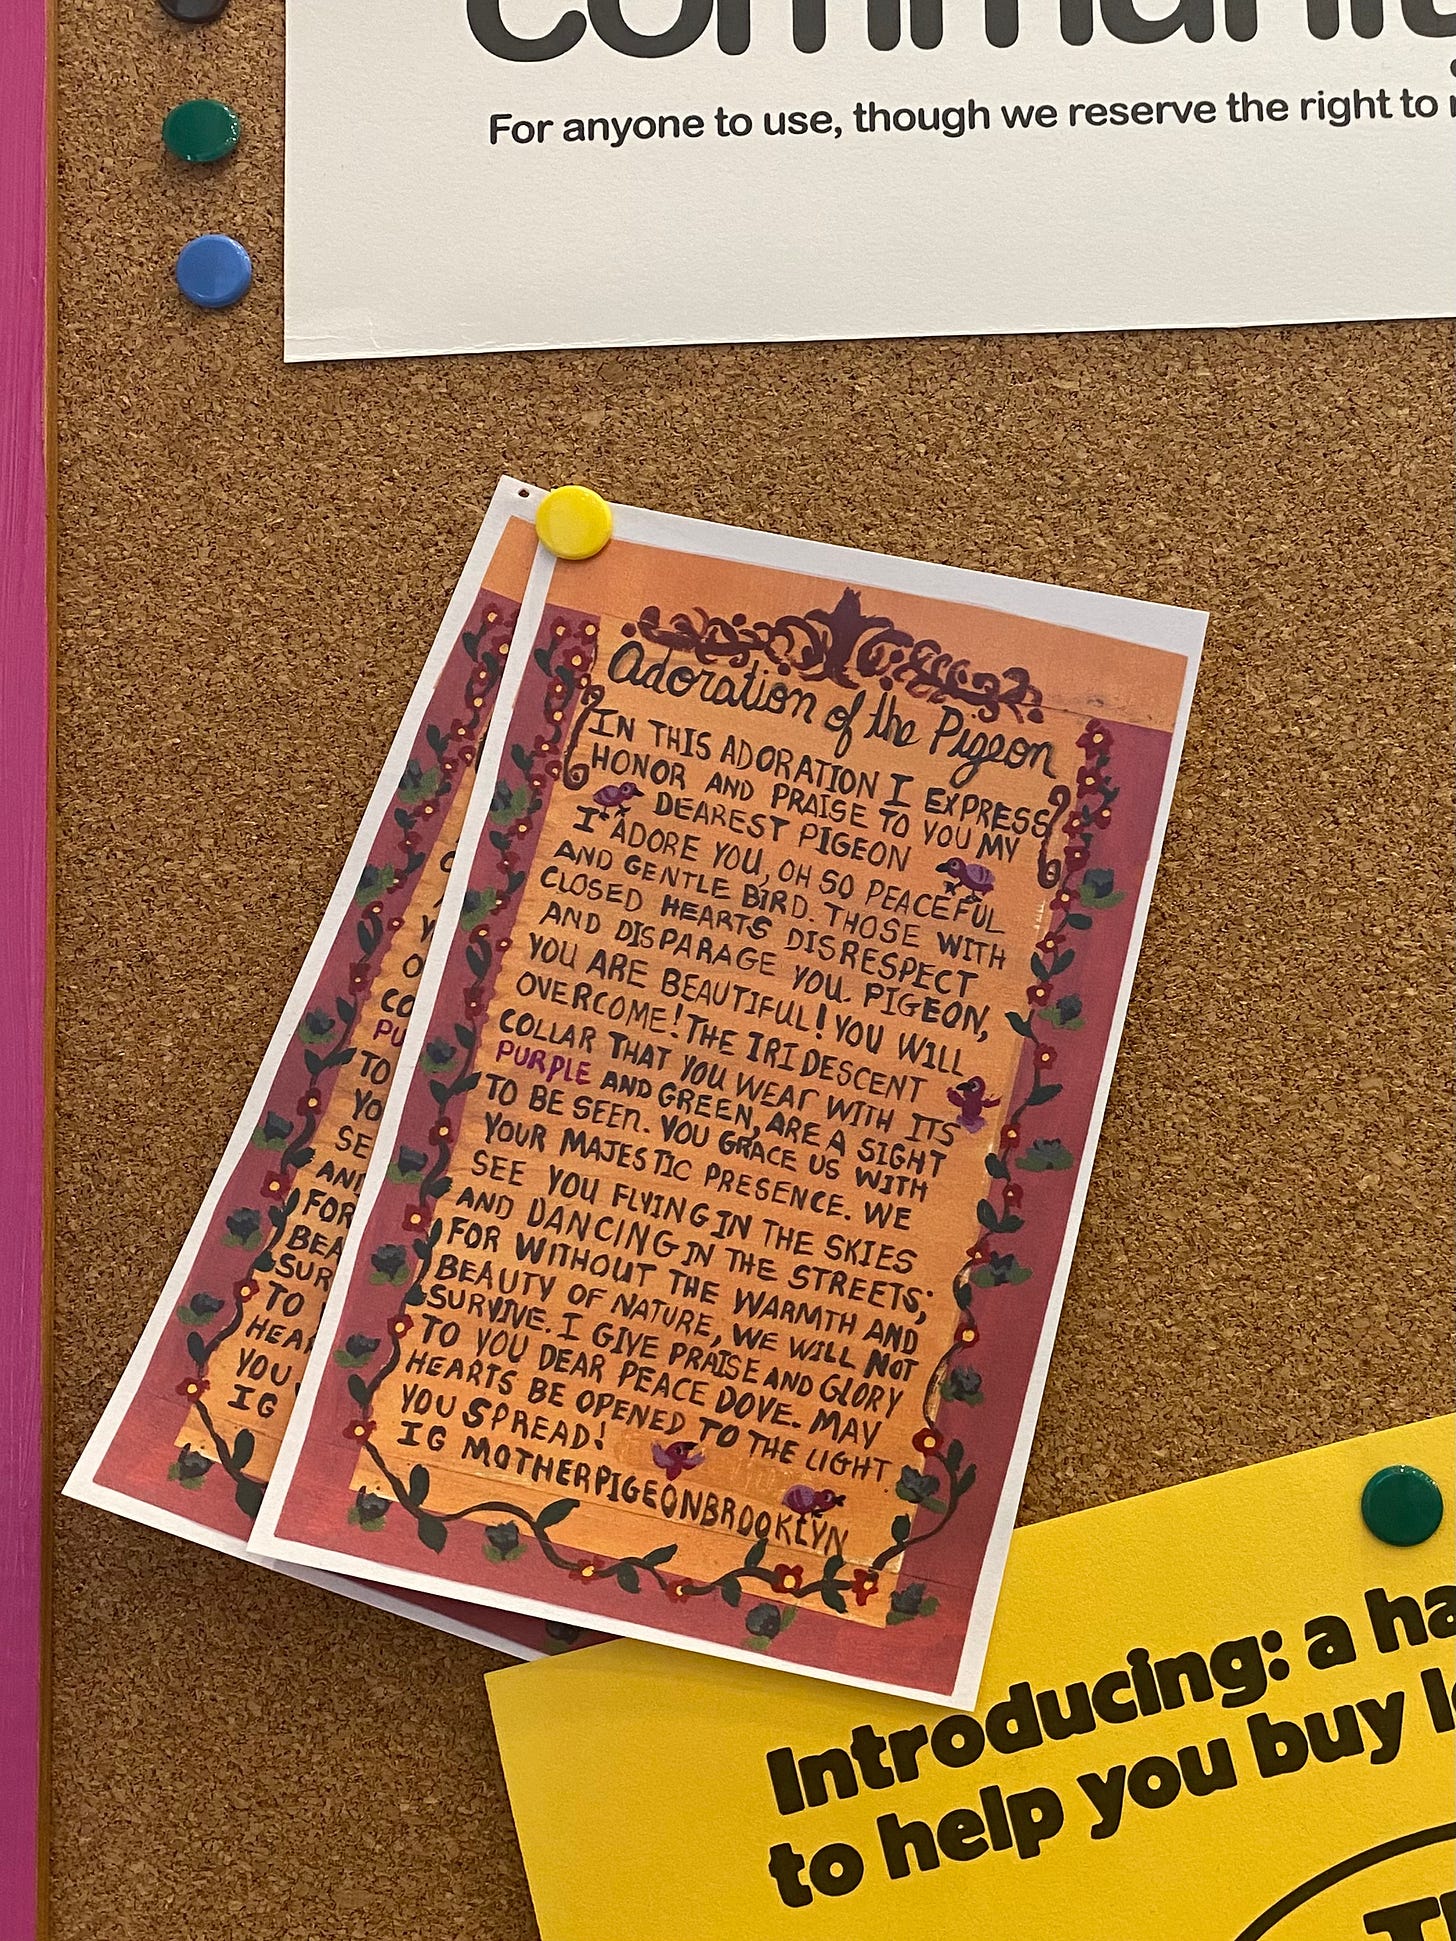 For anyone to use, though we reserve the right to
Adoration of the Pigeon
IN THIS ADORATION I EXPRESS
HONOR AND PRAISE TO YOU MY
DEAREST PIGEON
I ADORE YOU, OH SO PEACEFUL
AND GENTLE BIRD. THOSE WITH
CLOSED HEARTS DISRESPECT
AND DISPARAGE YOU. PIGEON,
YOU ARE BEAUTIFUL! YOU WILL
OVERCOME! THE IRIDESCENT
COLLAR THAT YOU WEAR WITH ITS
PURPLE AND GREEN, ARE A SIGHT
TO BE SEEN. YOU GRACE US WITH
YOUR MAJESTIC PRESENCE. WE
SEE YOU FLYING IN THE SKIES
AND DANCING IN THE STREETS;
FOR WITHOUT THE WARMTH AND
BEAUTY OF NATURE, WE WILL NOT
SURVIVE. I GIVE PRAISE AND GLORY
TO YOU DEAR PEACE DOVE. MAY
HEARTS BE OPENED TO THE LIGHT
YOU SPREAD!
IG MOTHERPIGEONBROOKLYN
CO
PU
TO
YO
SE
AN
FOR
BEA
SUR
TO
HEA
YOU
IG
Introducing: a ha
to help you buy